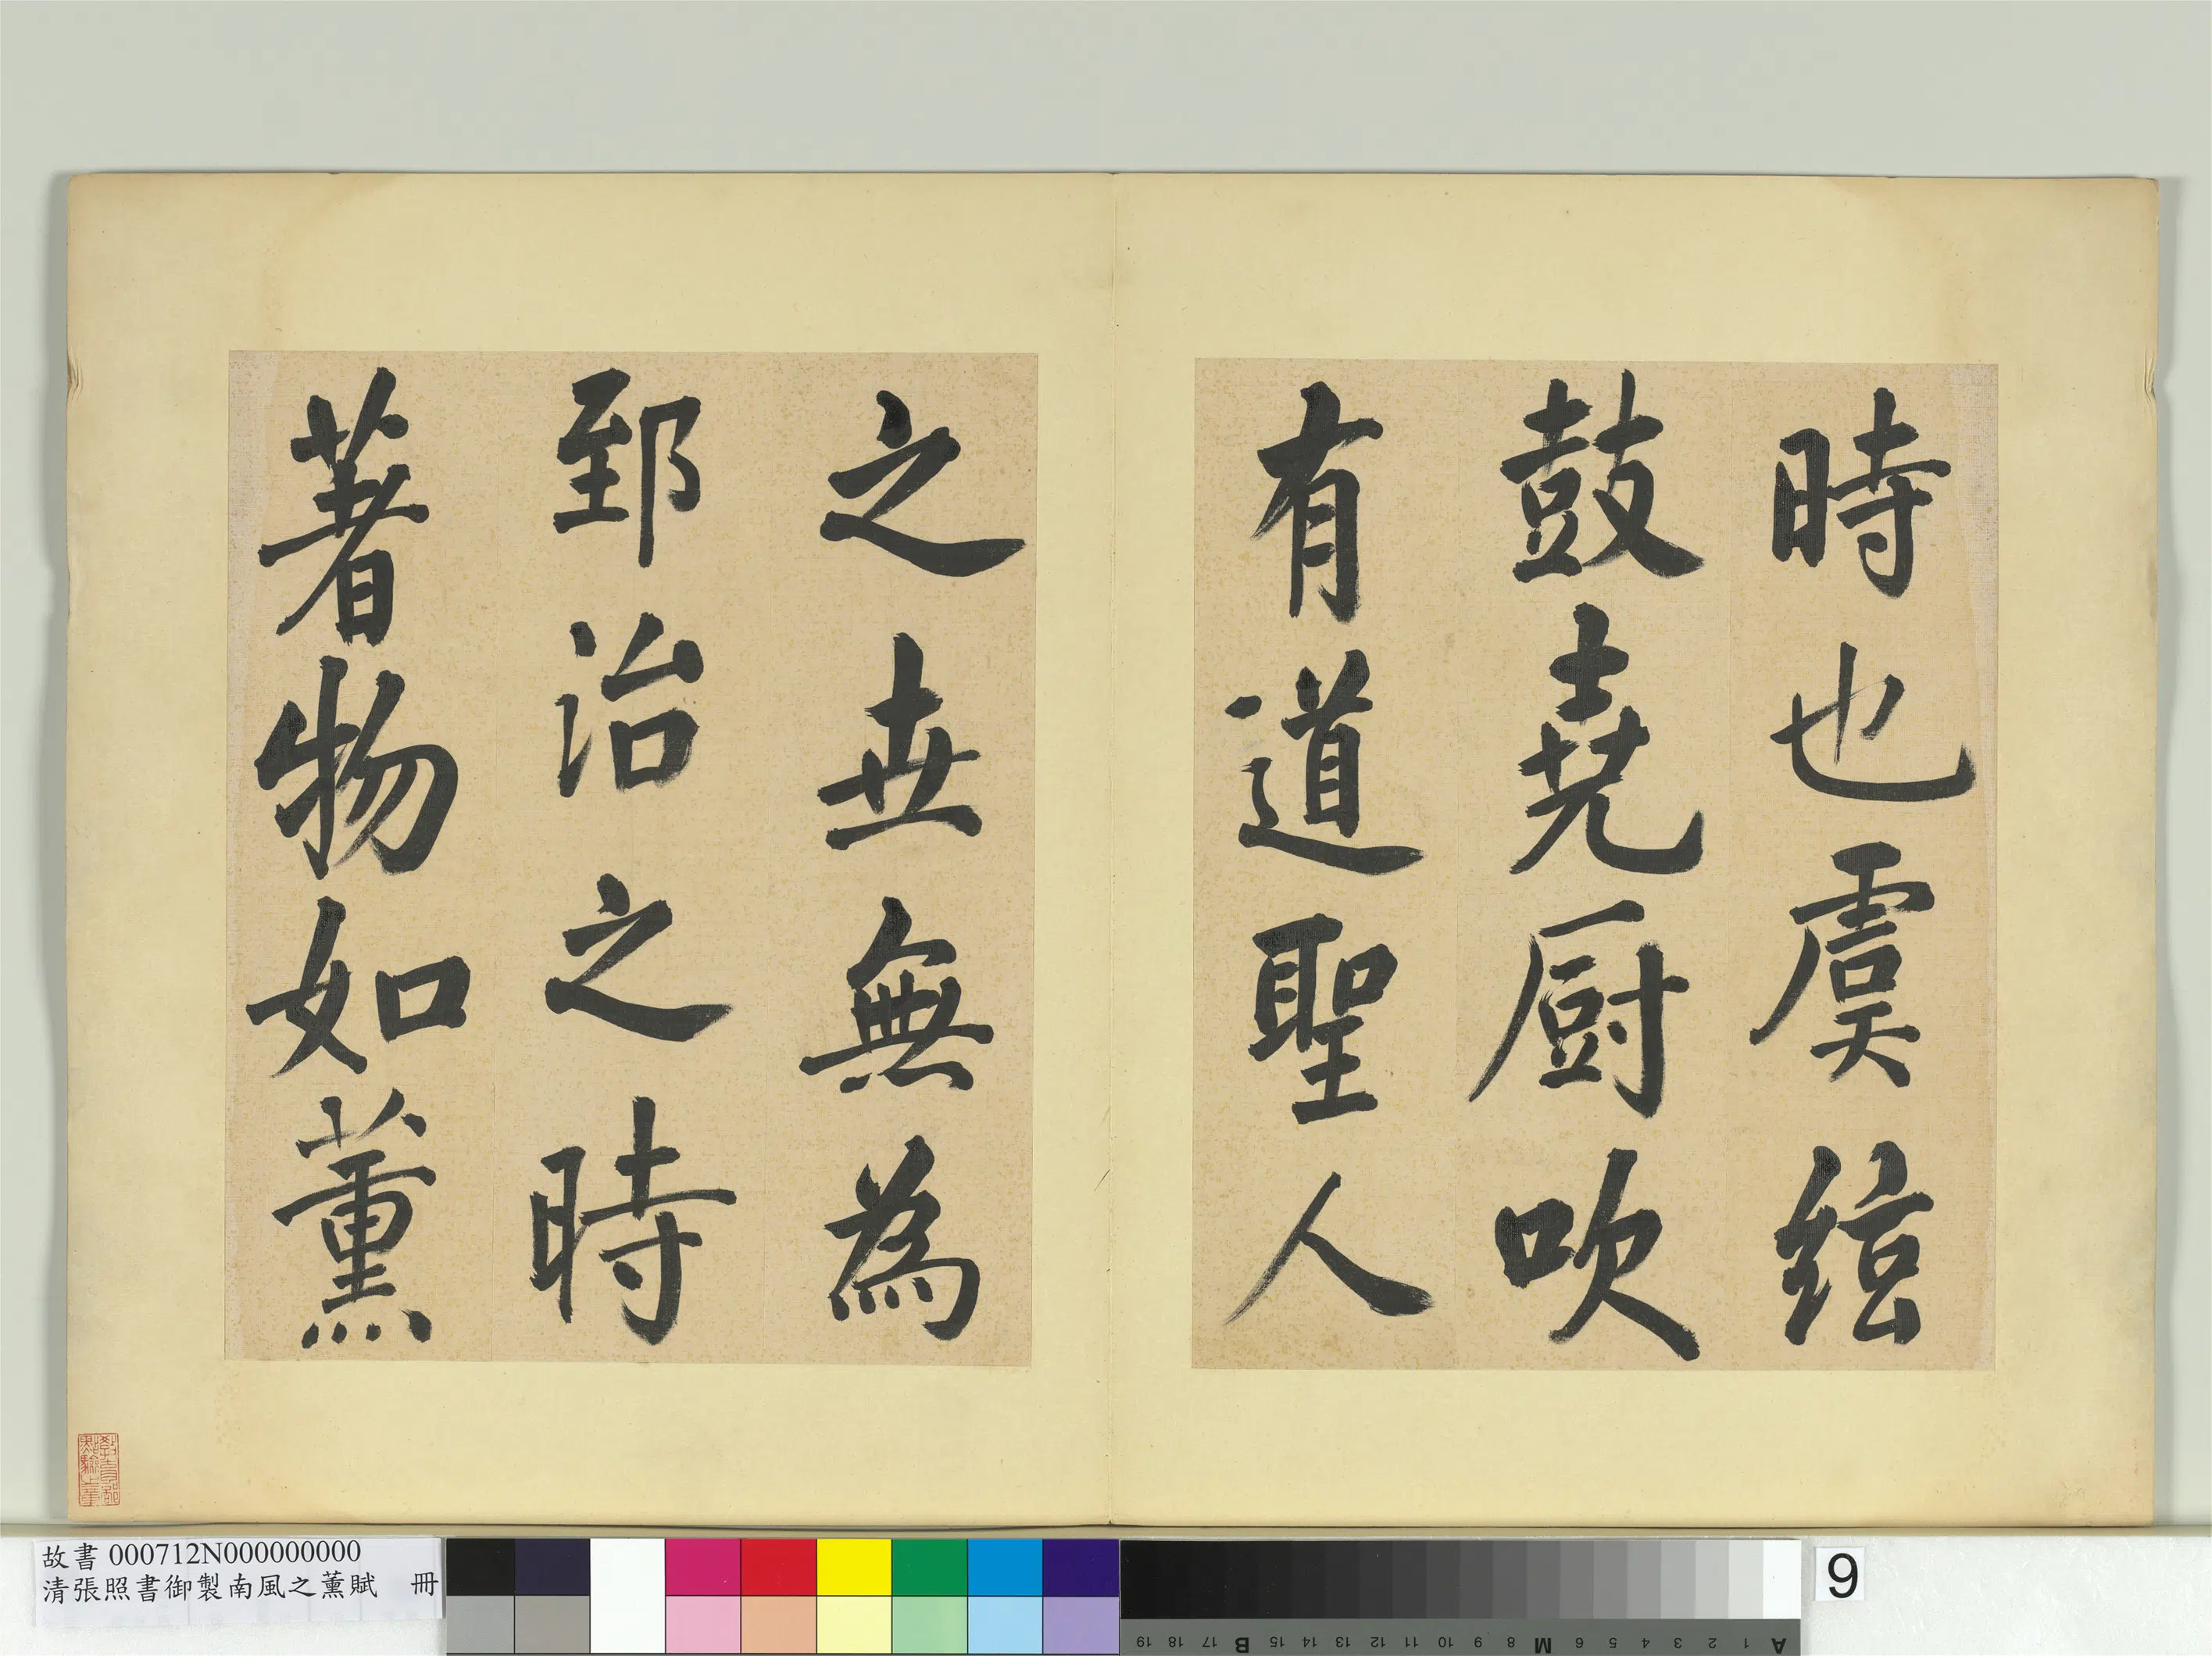 時也虞絃
鼓堯厨吹
有道聖人
之世無為
郅治之時
著物如薰
故書 000712N000000000
清張照書御製南風之薰賦 冊
9
A 1 2 3 4 5 6 M 8 9 10 11 12 13 14 15 B 17 18 19